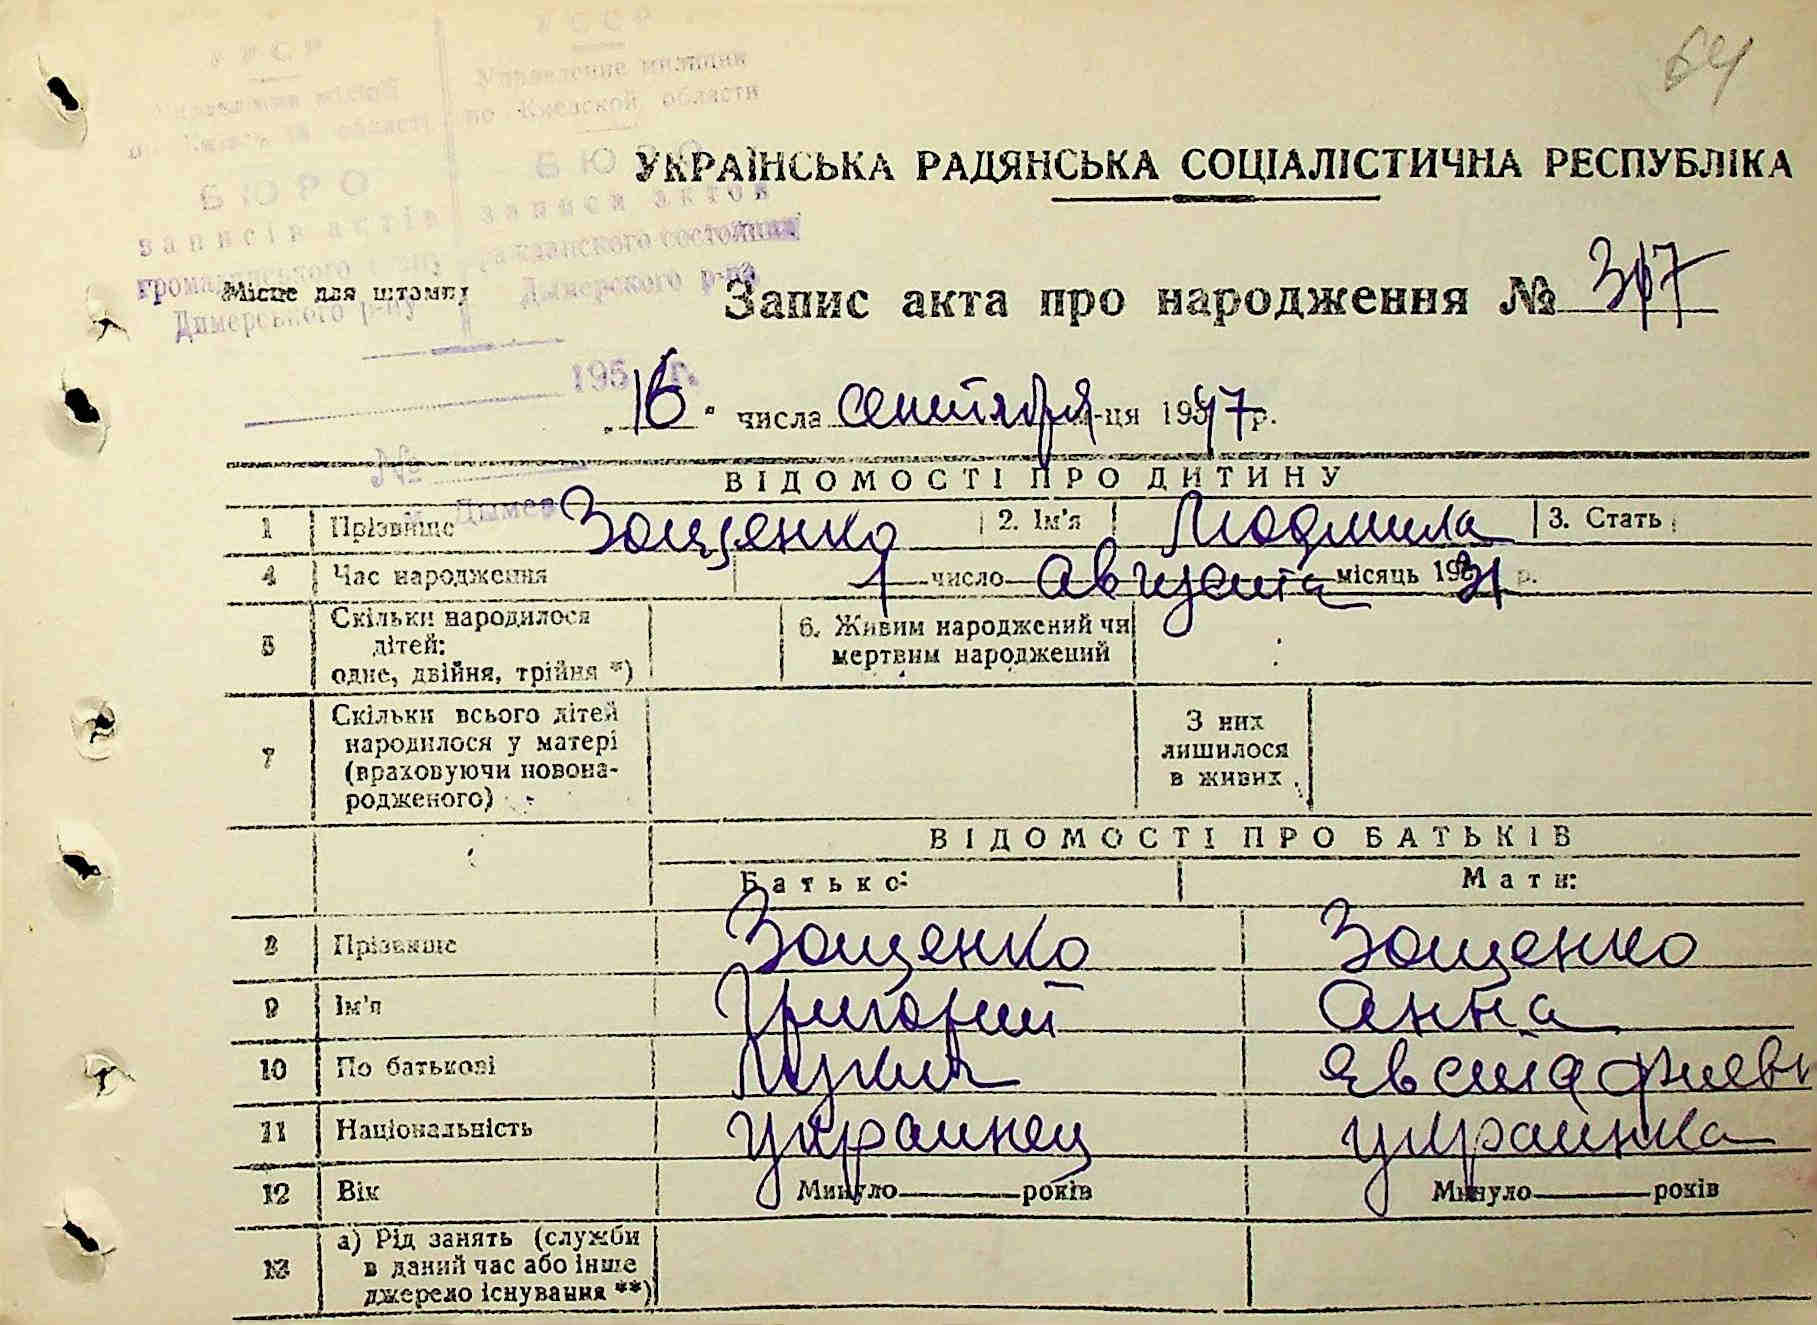 64
УРСР
Управління міліції
по Київській області
БЮРО
записів актів
громадянського стану
Димерського р-ну
УССР
Управление милиции
по Киевской области
БЮРО
записи актов
гражданского состояния
Дымерского р-на
195 г.
№
Дымер
УКРАЇНСЬКА РАДЯНСЬКА СОЦІАЛІСТИЧНА РЕСПУБЛІКА
Місце для штампу
Запис акта про народження № 317
16 числа сентября м-ця 1947 р.
ВІДОМОСТІ ПРО ДИТИНУ
1 Прізвище Зощенко 2. Ім'я Людмила 3. Стать
4 Час народження 1 число августа місяць 1931 р.
5 Скільки народилося
дітей:
одне, двійня, трійня *)
6. Живим народжений чи
мертвим народжений
7 Скільки всього дітей
народилося у матері
(враховуючи новона-
родженого)
З них
лишилося
в живих
ВІДОМОСТІ ПРО БАТЬКІВ
Батько: Мати:
8 Прізвище Зощенко Зощенко
9 Ім'я Григорий Анна
10 По батькові Лукич Евстафиевн
11 Національність украинец украинка
12 Вік Минуло років Минуло років
13 а) Рід занять (служби
в даний час або інше
джерело існування **)